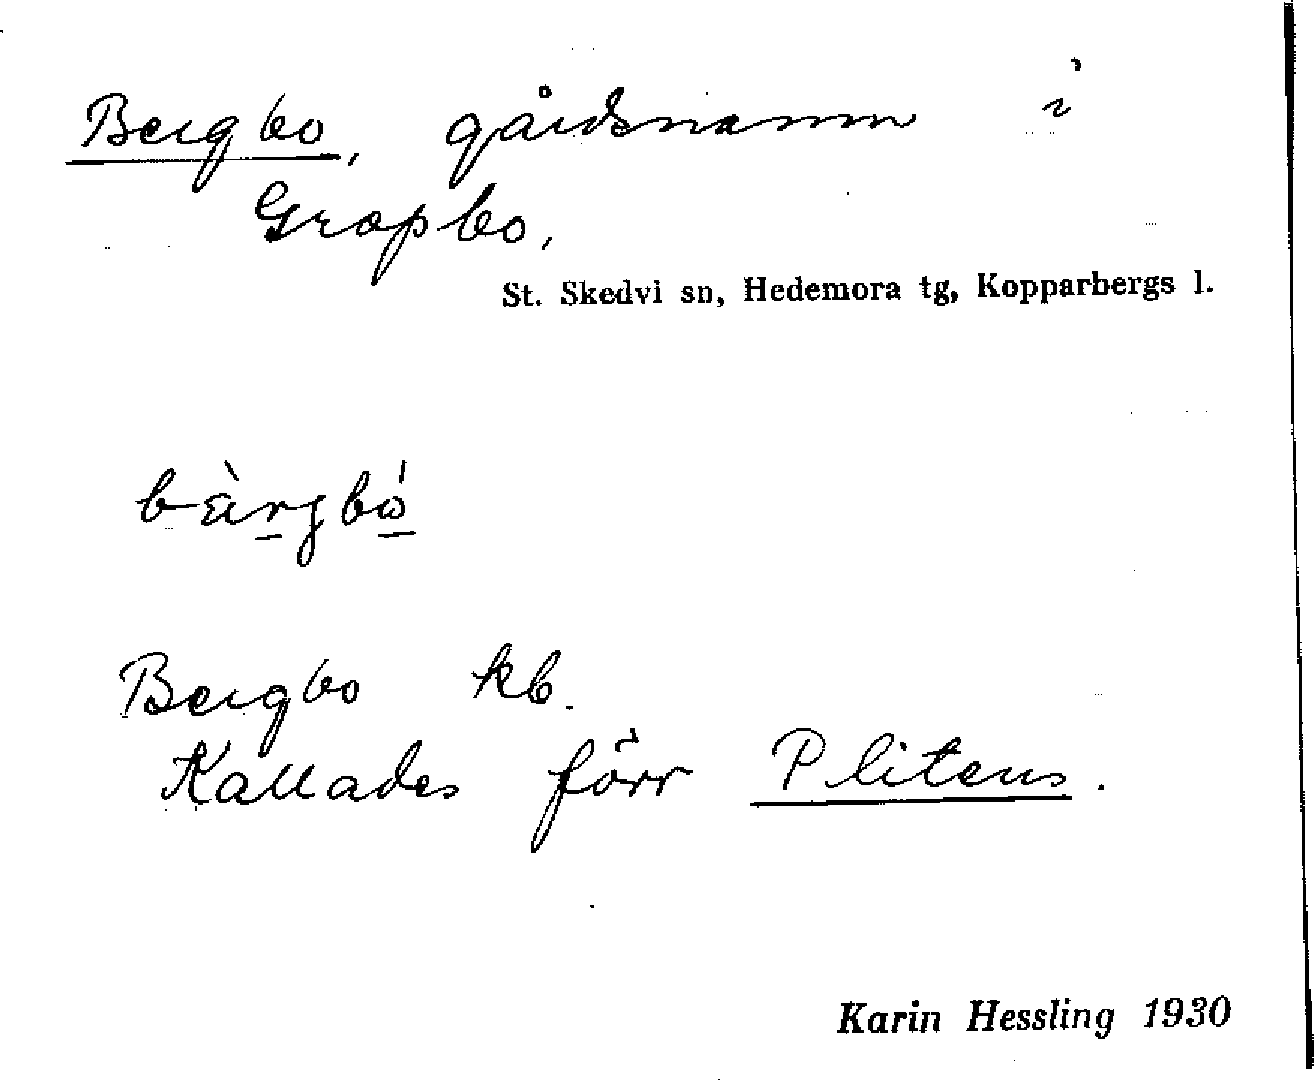 Bergbo, gårdsnamn i
Gropbo,
St. Skedvi sn, Hedemora tg, Kopparbergs l.
bàrgbó
Bergbo kb.
Kallades förr Plitens.
Karin Hessling 1930